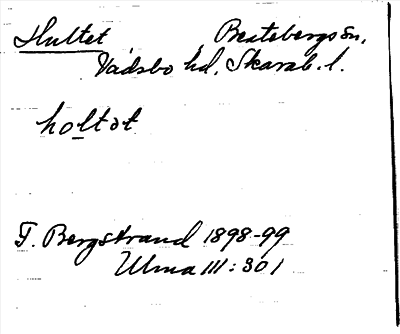 Hultet , Beatebergs sn,
Vadsbo hd, Skarab. l.
holtət
F. Bergstrand 1898-99
Ulma III: 301